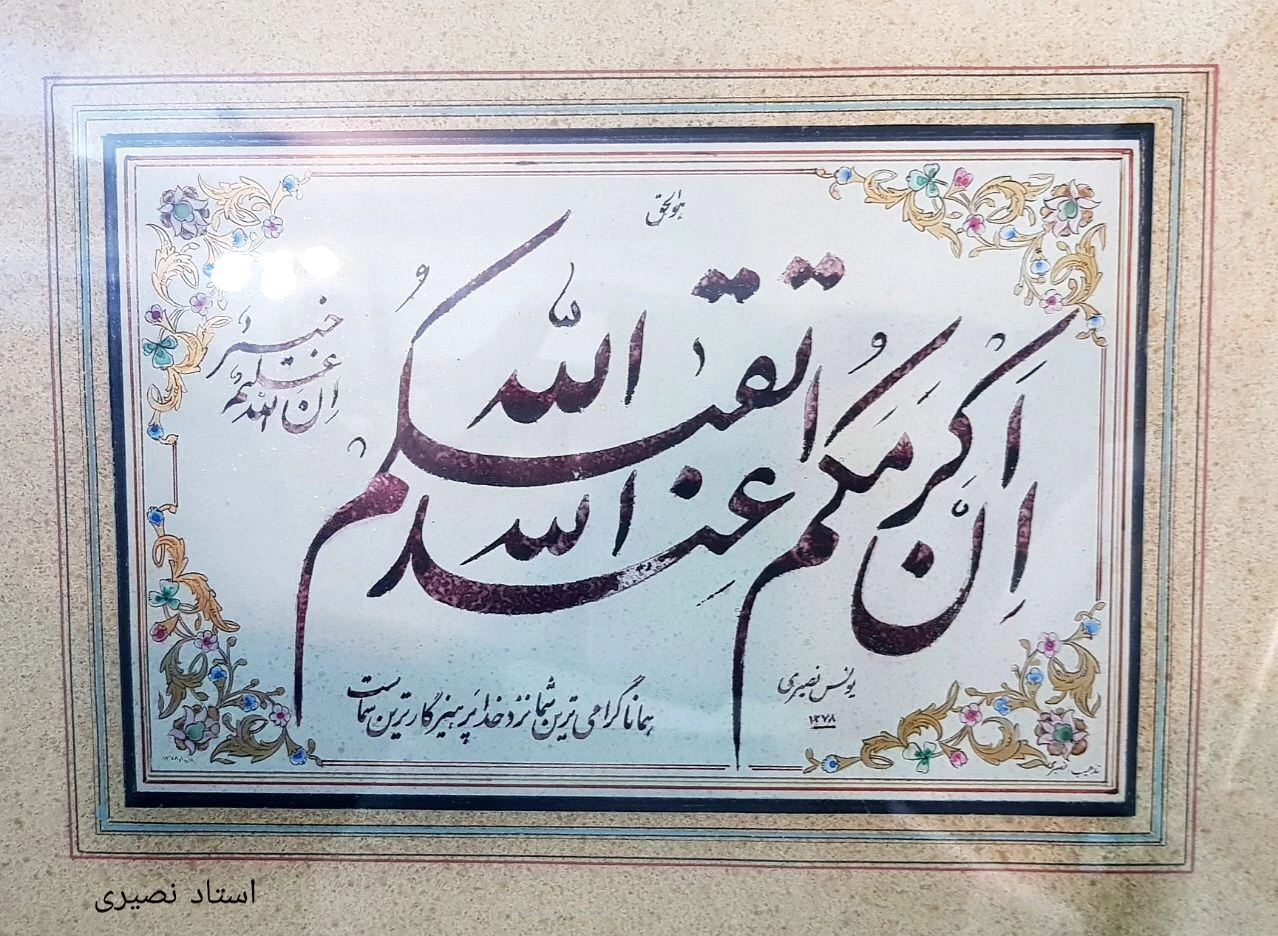 هوالحق
اِنَّ اَکرَمَکُم عِندَ الله اتقیکُم
اِن الله علیمٌ
خبیر
همانا گرامی ترین شما نزد خدا پرهیزگارترین شماست
یونس نصیری
۱۳۷۸
تذهیب نصیری
استاد نصیری